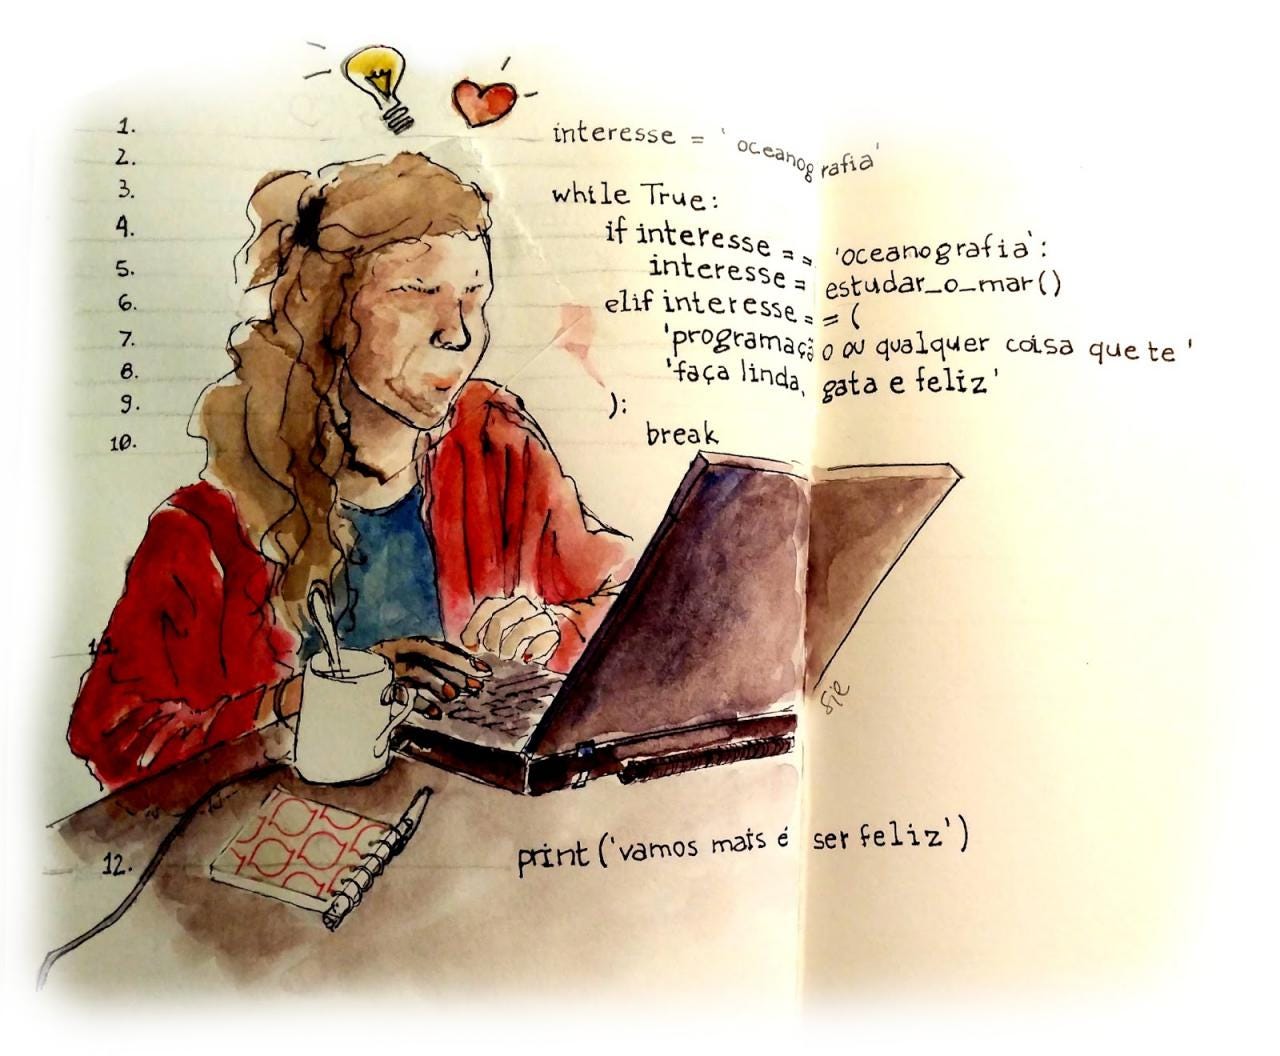 1. interesse = 'oceanografia'
2.
3. while True:
4. if interesse == 'oceanografia':
5. interesse = estudar_o_mar()
6. elif interesse == (
7. 'programação ou qualquer coisa que te '
8. 'faça linda, gata e feliz'
9. ):
10. break
11.
sie
12. print('vamos mais é ser feliz')